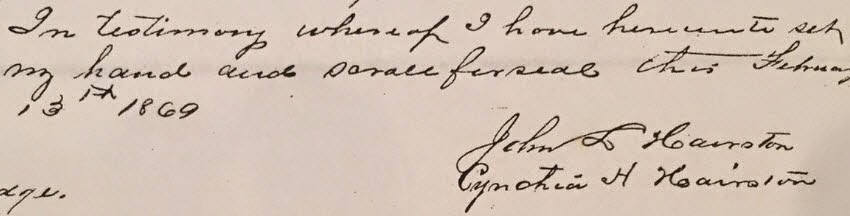 In testimony whereof I have hereunto set
my hand and scrall for seal this Februa
13th 1869
John L Hairston
Cynthia H Hairston
dge.